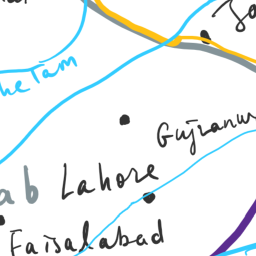 heTam
Gujranw
ab
Lahore
Faisalabad